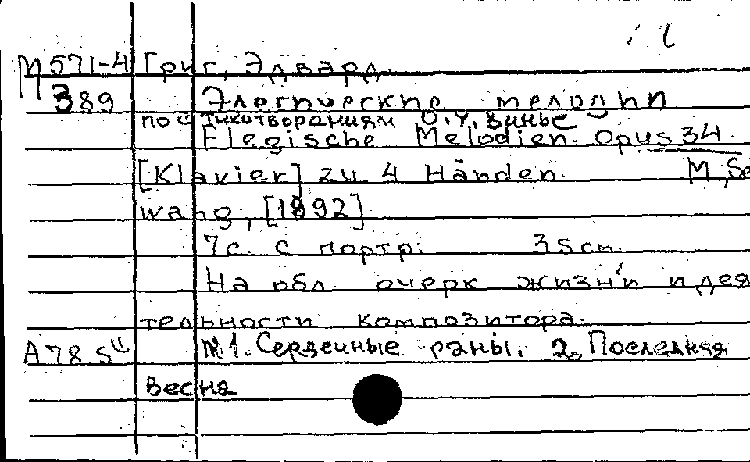 М 571-4 Григ, Эдвард.
3
389 Элегические мелодии
по стихотворениям О.У. Винье
Elegische Melodien. Opus 34.
[Klavier] zu 4 Händen. М., Se
wang, [1892]
7с. с портр. 35см.
На обл. очерк жизни и дея
тельности композитора.
А 785" №1. Сердечные раны. 2. Последняя
весна